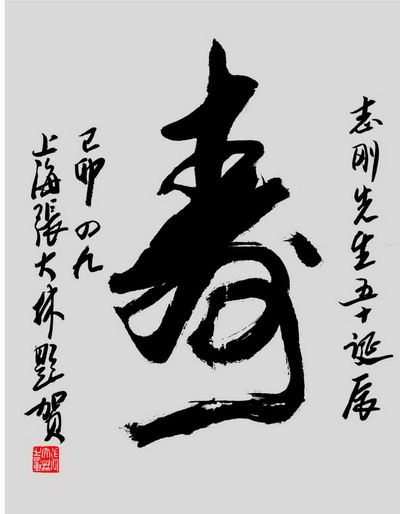 志刚先生五十诞辰
寿
己卯四九
上海張大林題贺